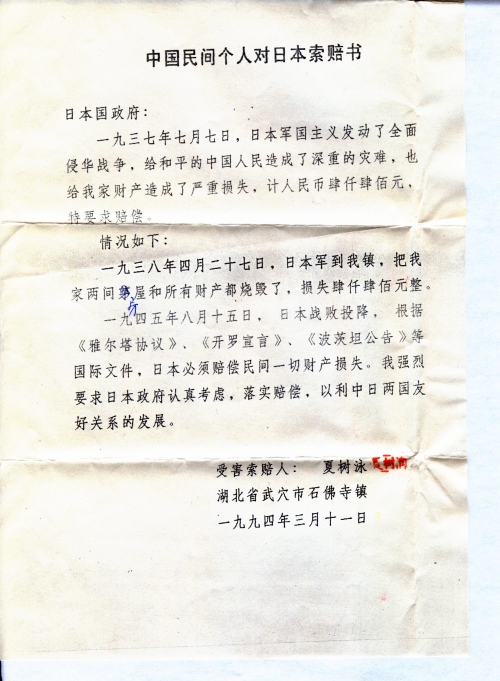 中国民间个人对日本索赔书
日本国政府：
一九三七年七月七日，日本军国主义发动了全面
侵华战争，给和平的中国人民造成了深重的灾难，也
给我家财产造成了严重损失，计人民币肆仟肆佰元，
特要求赔偿。
情况如下：
一九三八年四月二十七日，日本军到我镇，把我
家两间房屋和所有财产都烧毁了，损失肆仟肆佰元整。
一九四五年八月十五日，日本战败投降，根据
《雅尔塔协议》、《开罗宣言》、《波茨坦公告》等
国际文件，日本必须赔偿民间一切财产损失。我强烈
要求日本政府认真考虑，落实赔偿，以利中日两国友
好关系的发展。
受害索赔人：夏树泳
湖北省武穴市石佛寺镇
一九九四年三月十一日